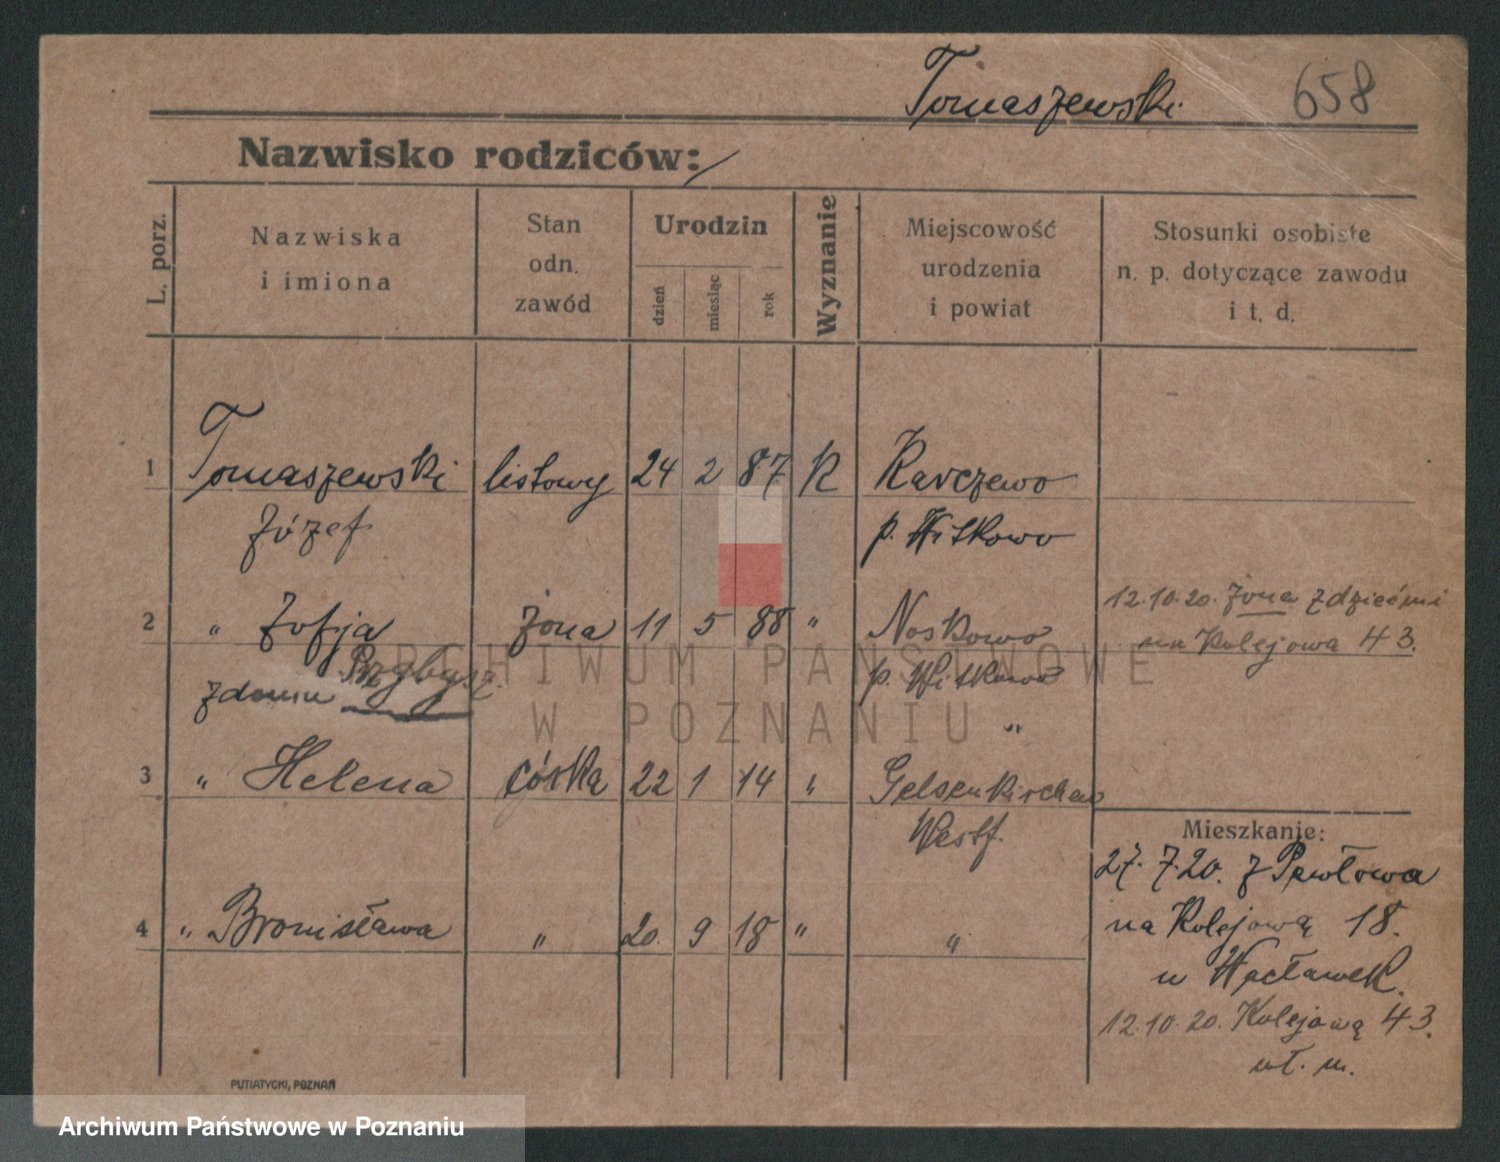 Tomaszewski 658
Nazwisko rodziców:
L. porz.
Nazwiska
i imiona
Stan
odn.
zawód
Urodzin
dzień
miesiąc
rok
Wyznanie
Miejscowość
urodzenia
i powiat
Stosunki osobiste
n. p. dotyczące zawodu
i t. d.
1 Tomaszewski listowy 24 2 87 K Karczewo
Józef p. Witkowo
2 " Zofja żona 11 5 88 " Noskowo
12.10.20. żona z dziećmi
na Kolejowa 43.
z domu p. Witkowo
"
3 " Helena córka 22 1 14 " Gelsenkirchen
Westf.
4 " Bronisława " 20. 9 18 " "
Mieszkanie:
27. 7.20. z Pawłowa
na Kolejową 18.
u Wacławek.
12.10.20. Kolejową 43.
wł. m.
PUTIATYCKI, POZNAŃ
ARCHIWUM PAŃSTWOWE
W POZNANIU
Archiwum Państwowe w Poznaniu